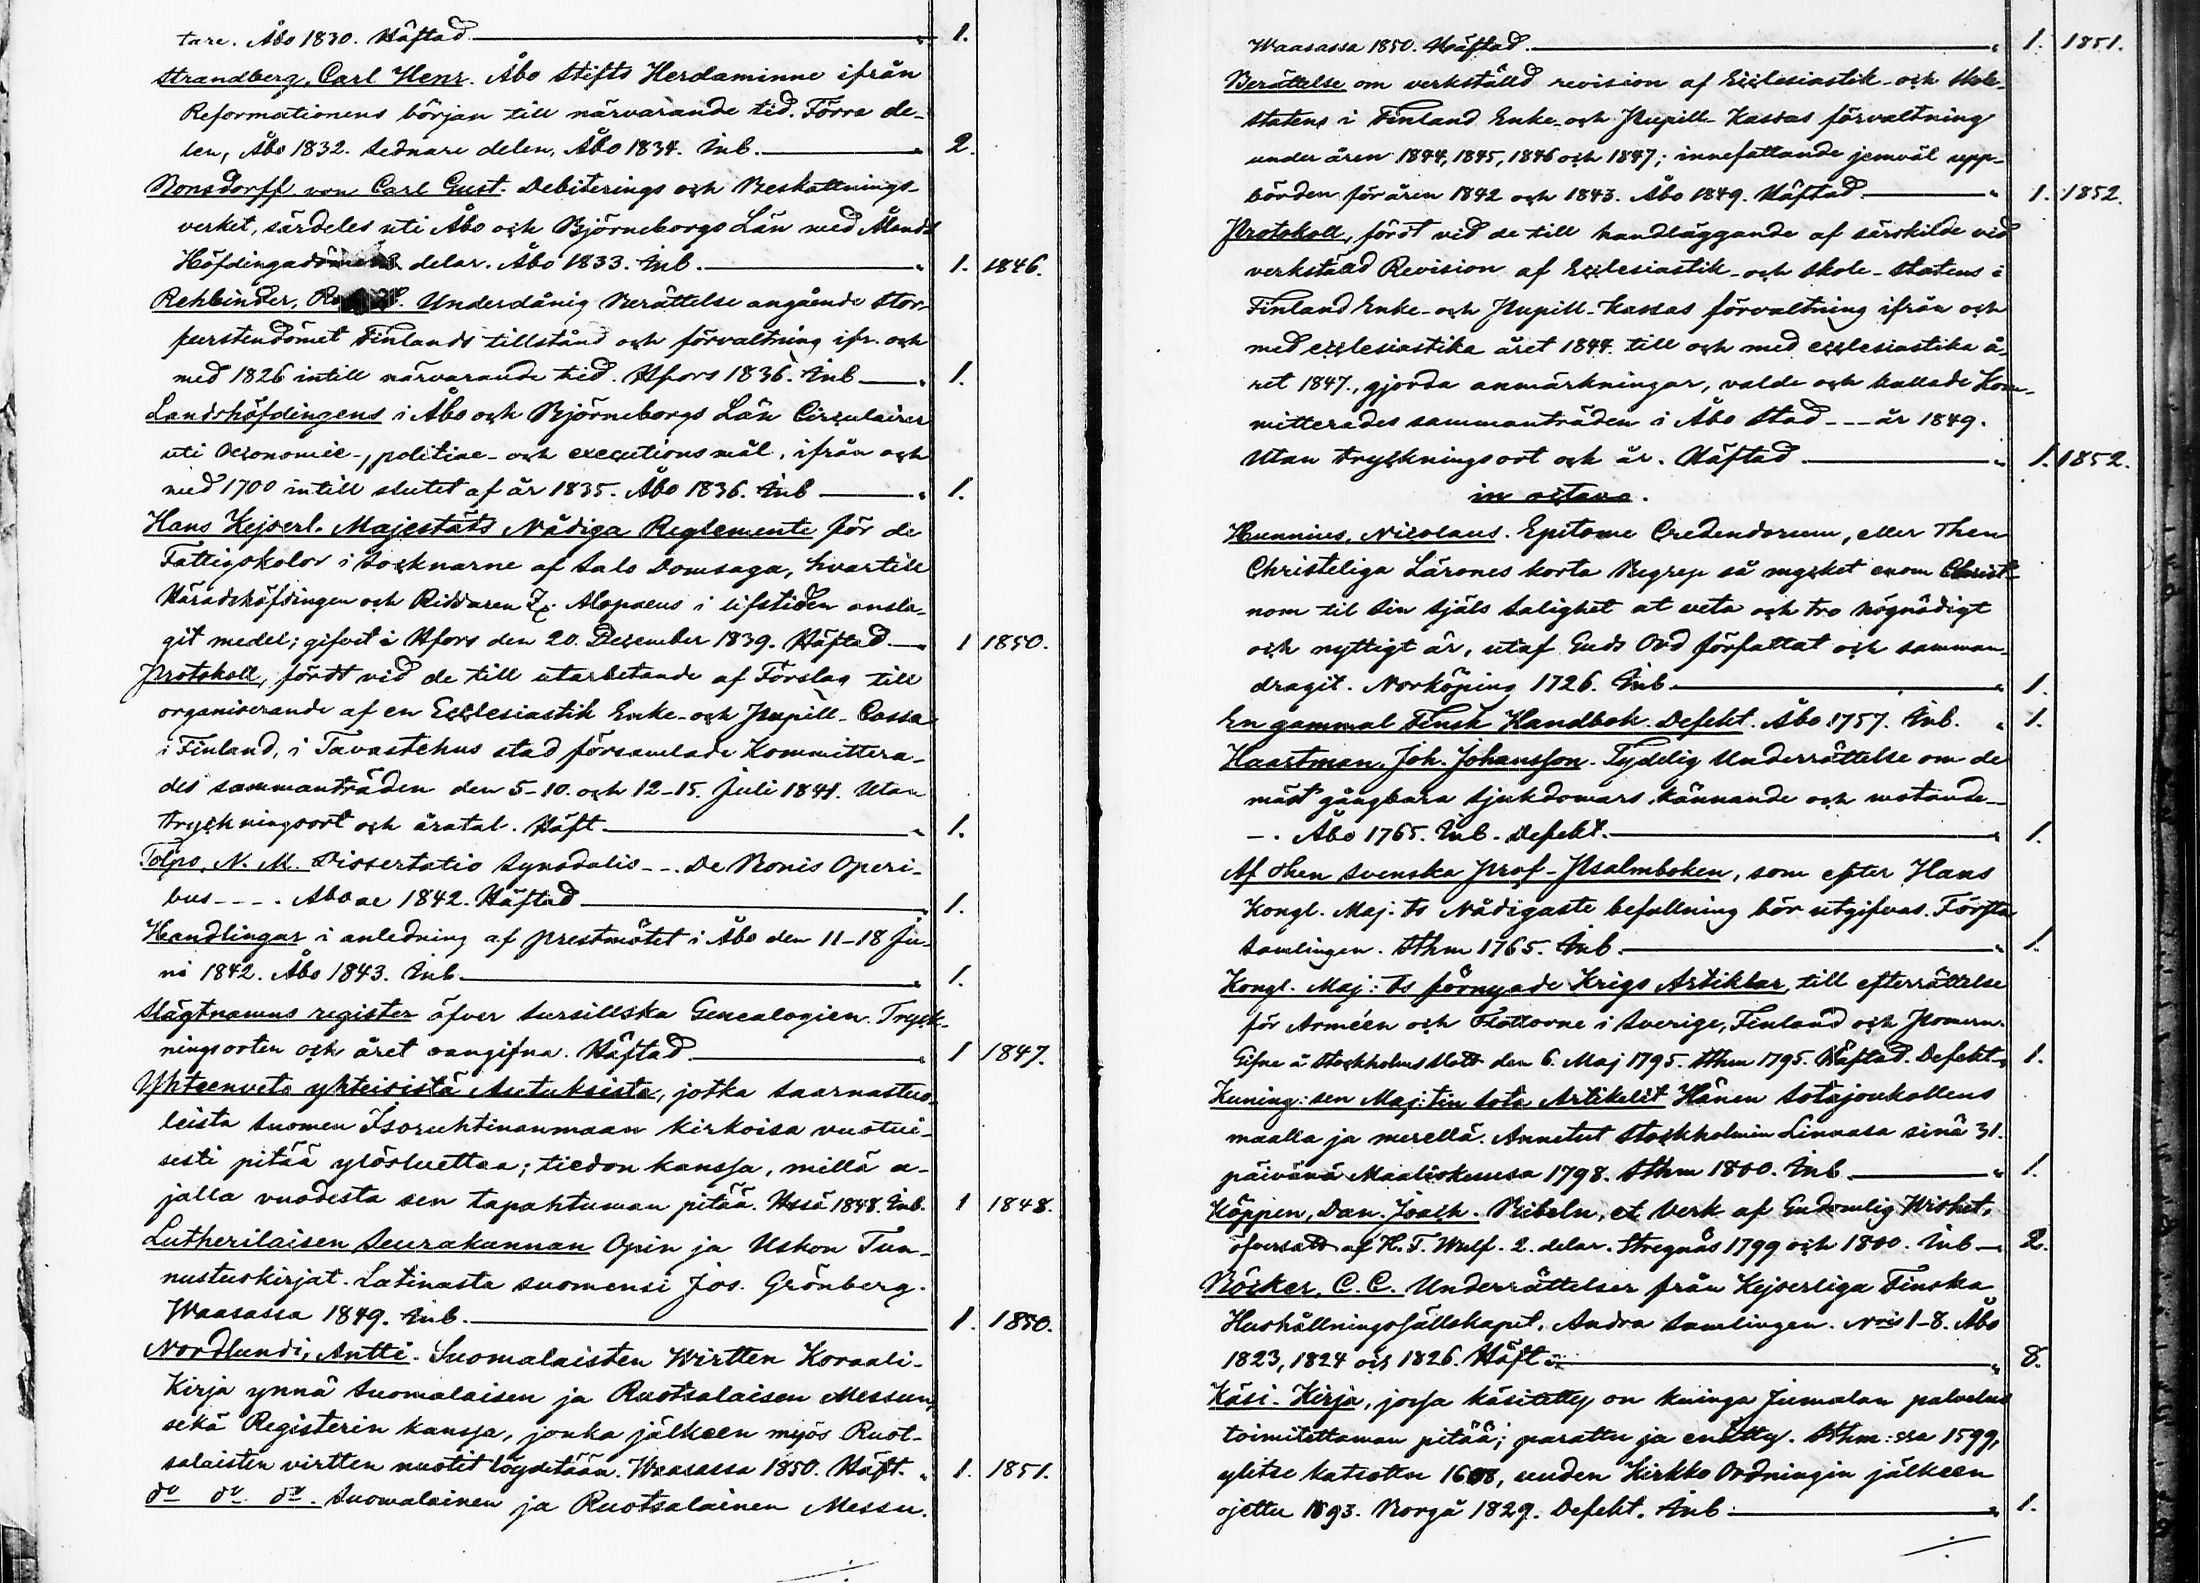 tare. Åbo 1830. Häftad " 1.
Strandberg, Carl Henr. Åbo Stifts Herdaminne ifrån
Reformationens början till närvarande tid. Förra de-
len, Åbo 1832. Sednare delen, Åbo 1834. Inb. " 2.
Bonsdorff, von Carl Gust. Debiterings och Beskattnings-
verket, särdeles uti Åbo och Björneborgs Län med Ålands
delar. Åbo 1833. Inb. " 1. 1846.
Rehbinder, Underdånig Berättelse angående Stor-
furstendömet Finlands tillstånd och förvaltning ifr. och
med 1826 intill närvarande tid. Hfors 1836. Inb " 1.
Landshöfdingens i Åbo och Björneborgs Län Circulairer
uti Oeconomie-, politiae- och executionsmål, ifrån och
med 1700 intill slutet af år 1835. Åbo 1836. Inb " 1.
Hans Kejserl. Majestäts Nådiga Reglemente för de
Fattigskolor i Socknarne af Salo Domsaga, hvartill
Häradshöfdingen och Riddaren Z. Alopaeus i lifstiden ansla-
git medel; gifvet i Hfors den 20. December 1839. Häftad 1 1850.
Protokoll, fördt vid de till utarbetande af Förslag till
organiserande af en Ecclesiastik Enke- och Pupill-Cassa
i Finland, i Tavastehus stad församlade Kommittera-
des sammanträden den 5-10. och 12-15. Juli 1841. Utan
tryckningsort och åratal. Häft. " 1.
Tolpo, N. M. Dissertatio Synodalis --. De Bonis Operi-
bus ----. Aboae 1842. Häftad " 1.
Handlingar i anledning af prestmötet i Åbo den 11-18 Ju-
ni 1842. Åbo 1843. Inb. " 1.
Slägtnamns register öfver Sursillska Genealogien. Tryck-
ningsorten och året oangifna. Häftad " 1 1847.
Yhteenveto yhteisistä Asetuksista, jotka saarnastuo-
leista Suomen Isoruhtinanmaan kirkoisa vuotui-
sesti pitää ylösluettaa; tiedon kanssa, millä a-
jalla vuodesta sen tapahtuman pitää. Hssä 1848. Inb. 1 1848.
Lutherilaisen Seurakunnan Opin ja Uskon Tun-
nustuskirjat. Latinasta suomensi Jos. Grönberg.
Waasassa 1849. Inb. 1. 1850.
Nordlundi, Antti. Suomalaisten Wirtten Koraali-
Kirja ynnä Suomalaisen ja Ruotsalaisen Messun,
sekä Registerin kanssa, jonka jälkeen myös Ruot-
salaisten virtten nuotit löydetään. Waasassa 1850. Häft. " 1. 1851.
do do do. Suomalainen ja Ruotsalainen Messu.
Waasassa 1850. Häftad. " 1. 1851.
Berättelse om verkställd revision af Ecclesiastik- och Skole-
Statens i Finland Enke- och Pupill-Kassas förvaltning
under åren 1844, 1845, 1846 och 1847; innefattande jemväl upp-
börden för åren 1842 och 1843. Åbo 1849. Häftad " 1. 1852.
Protokoll, fördt vid de till handläggande af särskilde vid
verkställd Revision af Ecclesiastik- och Skole-Statens i
Finland Enke- och Pupill-Kassas förvaltning ifrån och
med ecclesiastika året 1844 till och med ecclesiastika å-
ret 1847, gjorda anmärkningar, valde och kallade Kom-
mitterades sammanträden i Åbo Stad --- år 1849.
Utan tryckningsort och år. Häftad " 1. 1852.
in octavo.
Hunnius, Nicolaus. Epitome Credendorum, eller Then
Christeliga Lärones korta Begrep så mycket enom Christ-
nom til sin själs salighet at veta och tro högnödigt
och nyttigt är, utaf Guds Ord författat och samman-
dragit. Norköping 1726. Inb. " 1.
En gammal Finsk Handbok. Defekt. Åbo 1757. Inb. " 1.
Haartman, Joh. Johansson. Tydelig Underrättelse om de
mäst gångbara Sjukdomars kännande och motande-
-. Åbo 1765. Inb. Defekt. " 1.
Af then Svenska Prof-Psalmboken, som efter Hans
Kongl. Maj:ts Nådigaste befallning bör utgifvas. Första
Samlingen. Sthm 1765. Inb. " 1.
Kongl. Maj:ts förnyade Krigs Artiklar, till efterrättelse
för Arméen och Flottorne i Sverige, Finland och Pomern.
Gifne å Stockholms Slott den 6. Maj 1795. Sthm 1795. Häftad. Defekt. " 1.
Kuning:sen Maj:tin Sota Artikelit Hänen Sotajoukollens
maalla ja merellä. Annetut Stockholmin Linnasa sinä 31.
päivänä Maaliskuusa 1798. Sthm 1800. Inb. " 1.
Köppen, Dan. Joach. Bibeln, et Verk af Gudomlig Wishet,
öfversatt af H. F. Wulf. 2. delar. Stregnäs 1799 och 1800. Inb. 2.
Böcker, C. C. Underrättelser från Kejserliga Finska
Hushållningssällskapet. Andra Samlingen. N:ris 1-8. Åbo
1823, 1824 och 1826. Häft " 8.
Käsi-Kirja, jossa käsitetty on kuinga Jumalan palvelus
toimitettaman pitää; parattu ja enätty. Sthm:ssa 1599,
ylitse katsottu 1608, uuden Kirkko Ordningin jälkeen
ojettu 1693. Borgå 1829. Defekt. Inb. " 1.